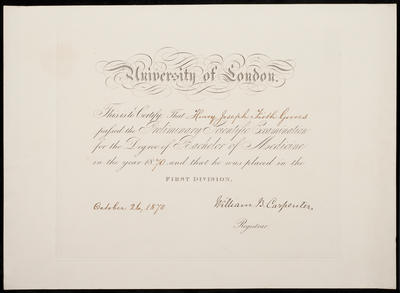 University of London.
This is to Certify That Henry Joseph Firth Groves
passed the Preliminary Scientific Examination
for the Degree of Bachelor of Medicine
in the year 1870 and that he was placed in the
FIRST DIVISION.
October 26, 1870
William B. Carpenter.
Registrar